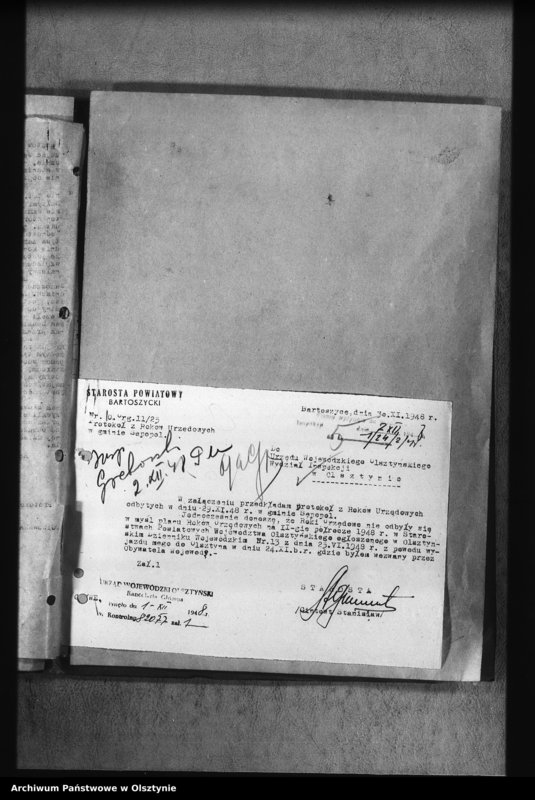 STAROSTA POWIATOWY
BARTOSZYCKI
Bartoszyce, dnia 30.XI.1948 r.
Nr. Org.11/25
Protokół z Roków Urzędowych
w gminie Sępopol.
2 XII
Do
Urzędu Wojewódzkiego Olsztyńskiego
Wydział Inspekcji
w Olsztynie
2 XII 48
W załączeniu przedkładam protokół z Roków Urzędowych
odbytych w dniu 29.XI.48 r. w gminie Sępopol.
Jednocześnie donoszę, że Roki Urzędowe nie odbyły się
w myśl planu Roków Urzędowych na II-gie półrocze 1948 r. w Staro-
stwach Powiatowych Województwa Olsztyńskiego ogłoszonego w Olsztyń-
skim Dzienniku Wojewódzkim Nr.13 z dnia 25.VI.1948 r. z powodu wy-
jazdu mego do Olsztyna w dniu 24.XI.b.r. gdzie byłem wezwany przez
Obywatela Wojewodę.-
Zał.1
URZĄD WOJEWÓDZKI OLSZTYŃSKI
Kancelaria Główna
wpłyn. dn. 1-XII 1948 r.
Nr. Kontrolny 82022 zał. 1
STAROSTA
Stanisław/
Archiwum Państwowe w Olsztynie